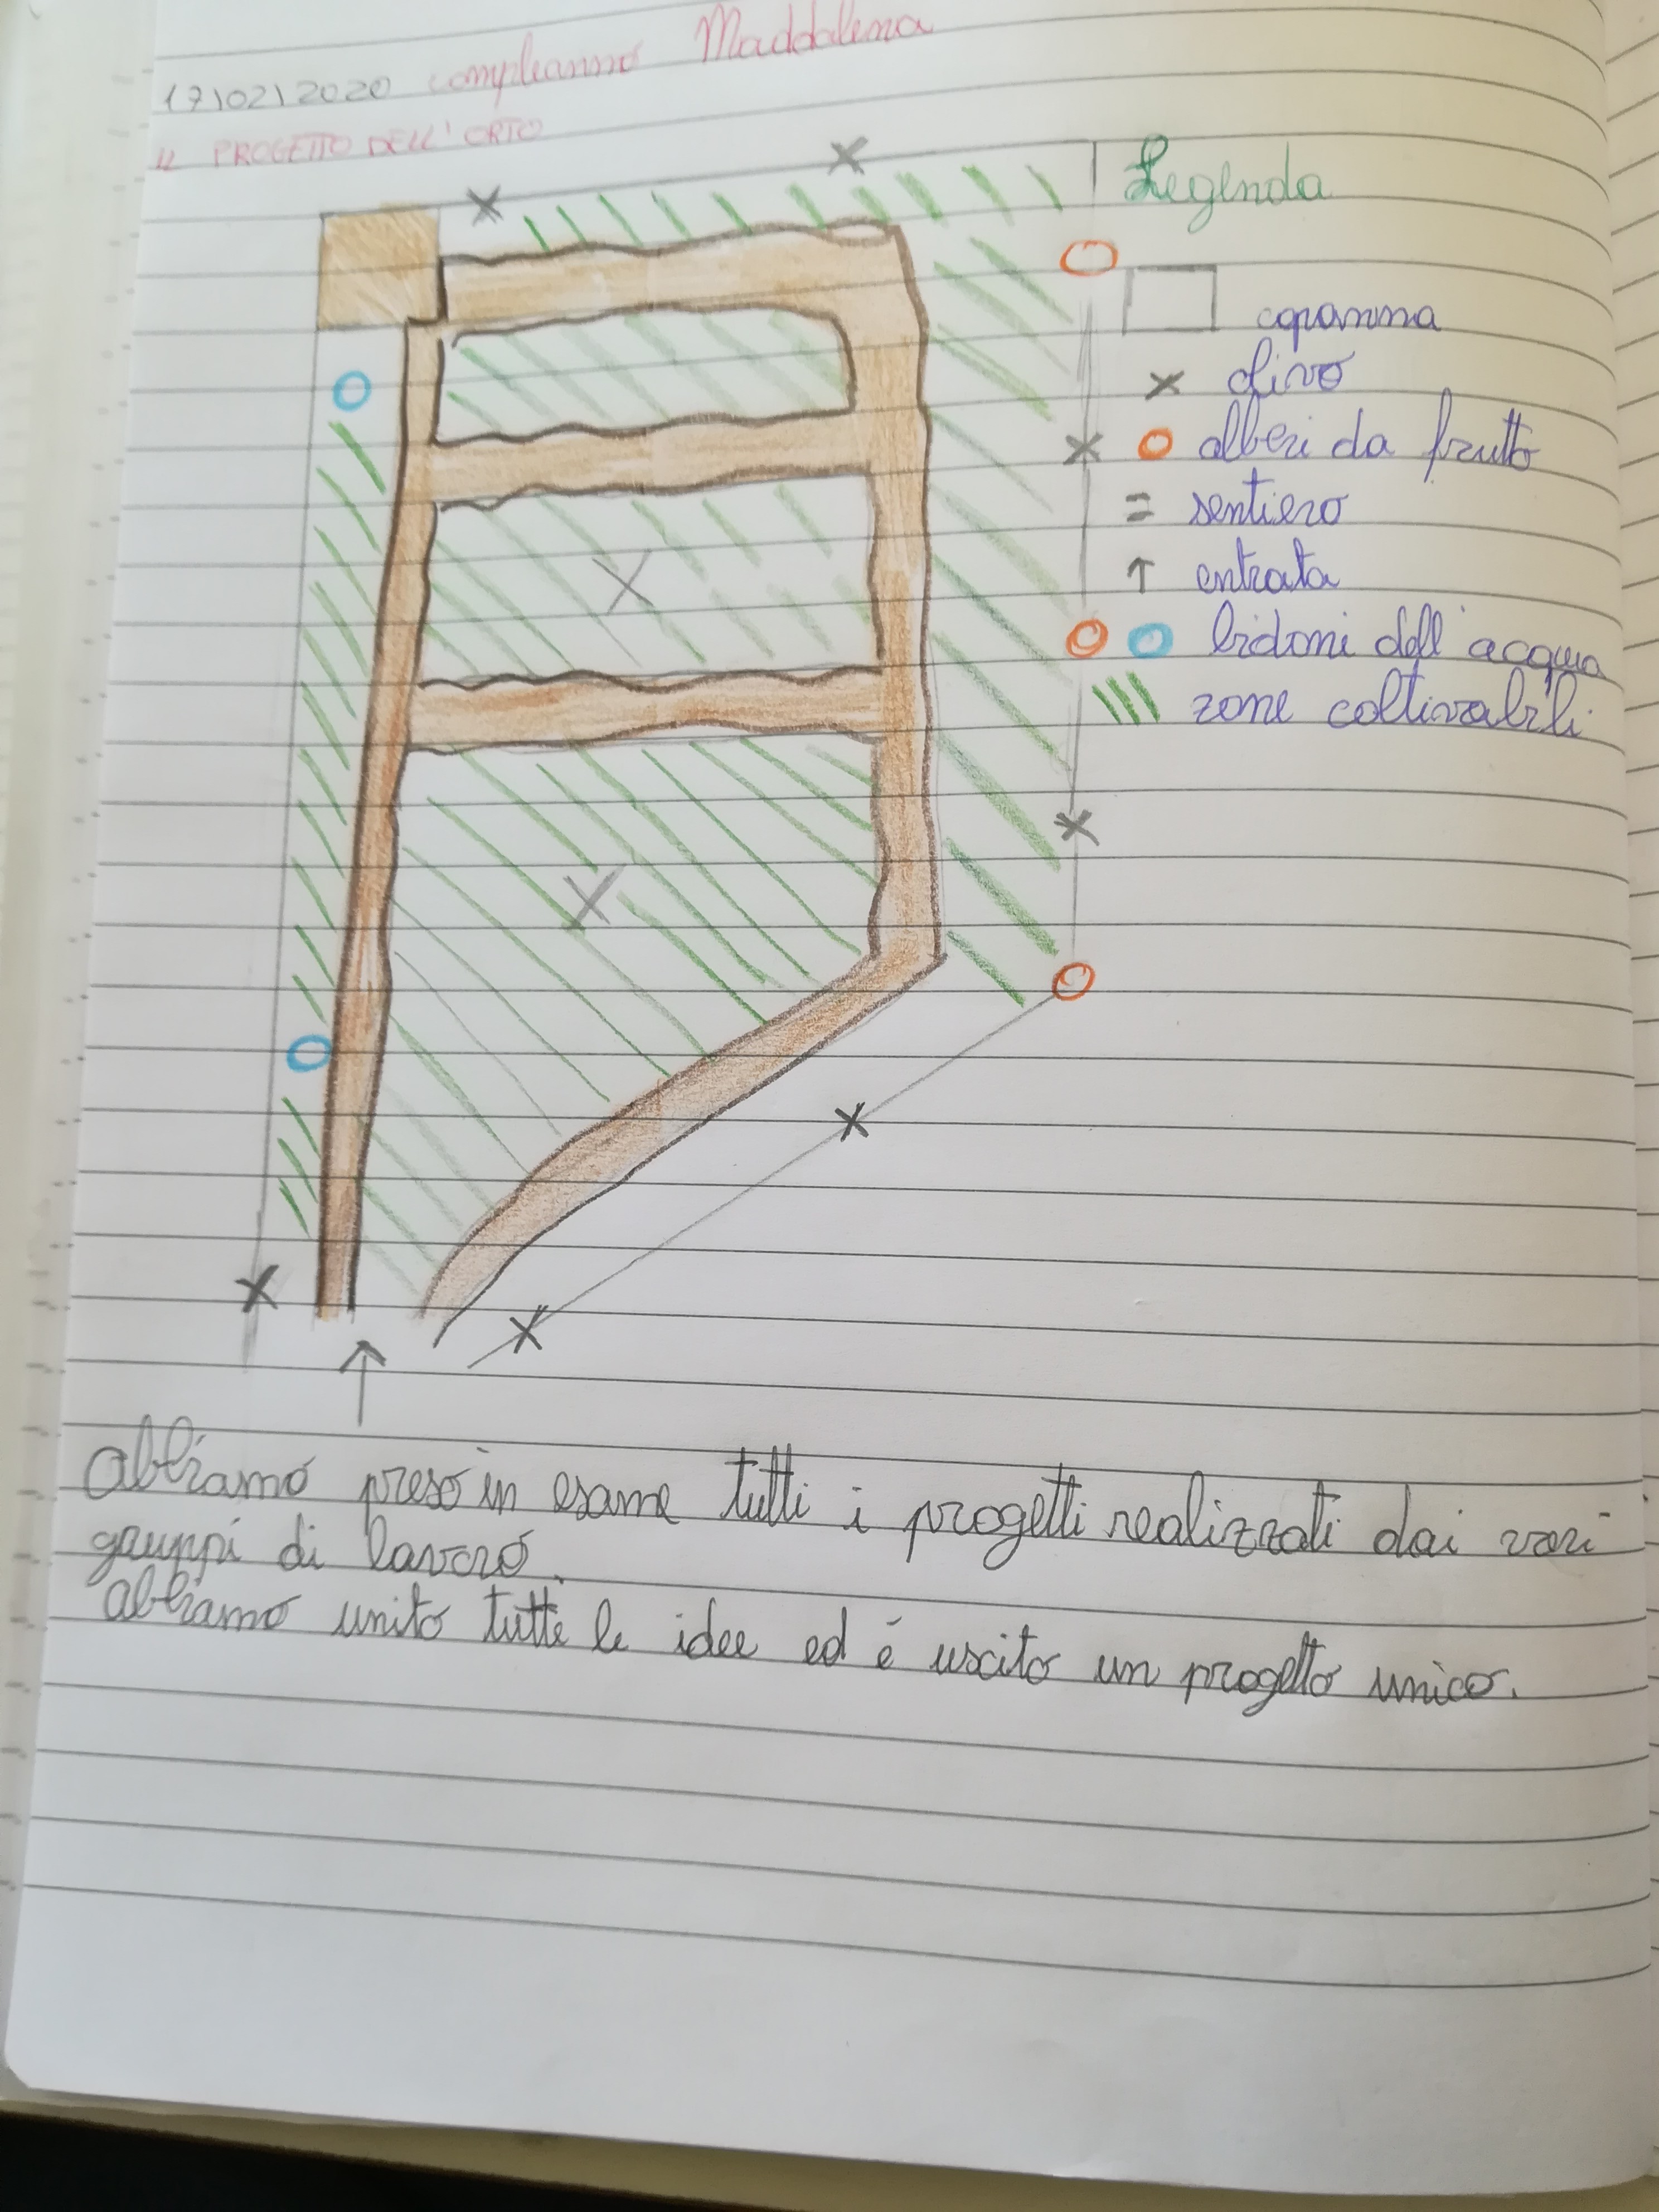 17\02\2020 compleanno Maddalena
IL PROGETTO DELL'ORTO
Legenda
capanna
olivo
alberi da frutto
sentiero
entrata
bidoni dell'acqua
zone coltivabili
Abbiamo preso in esame tutti i progetti realizzati dai vari
gruppi di lavoro.
Abbiamo unito tutte le idee ed é uscito un progetto unico.